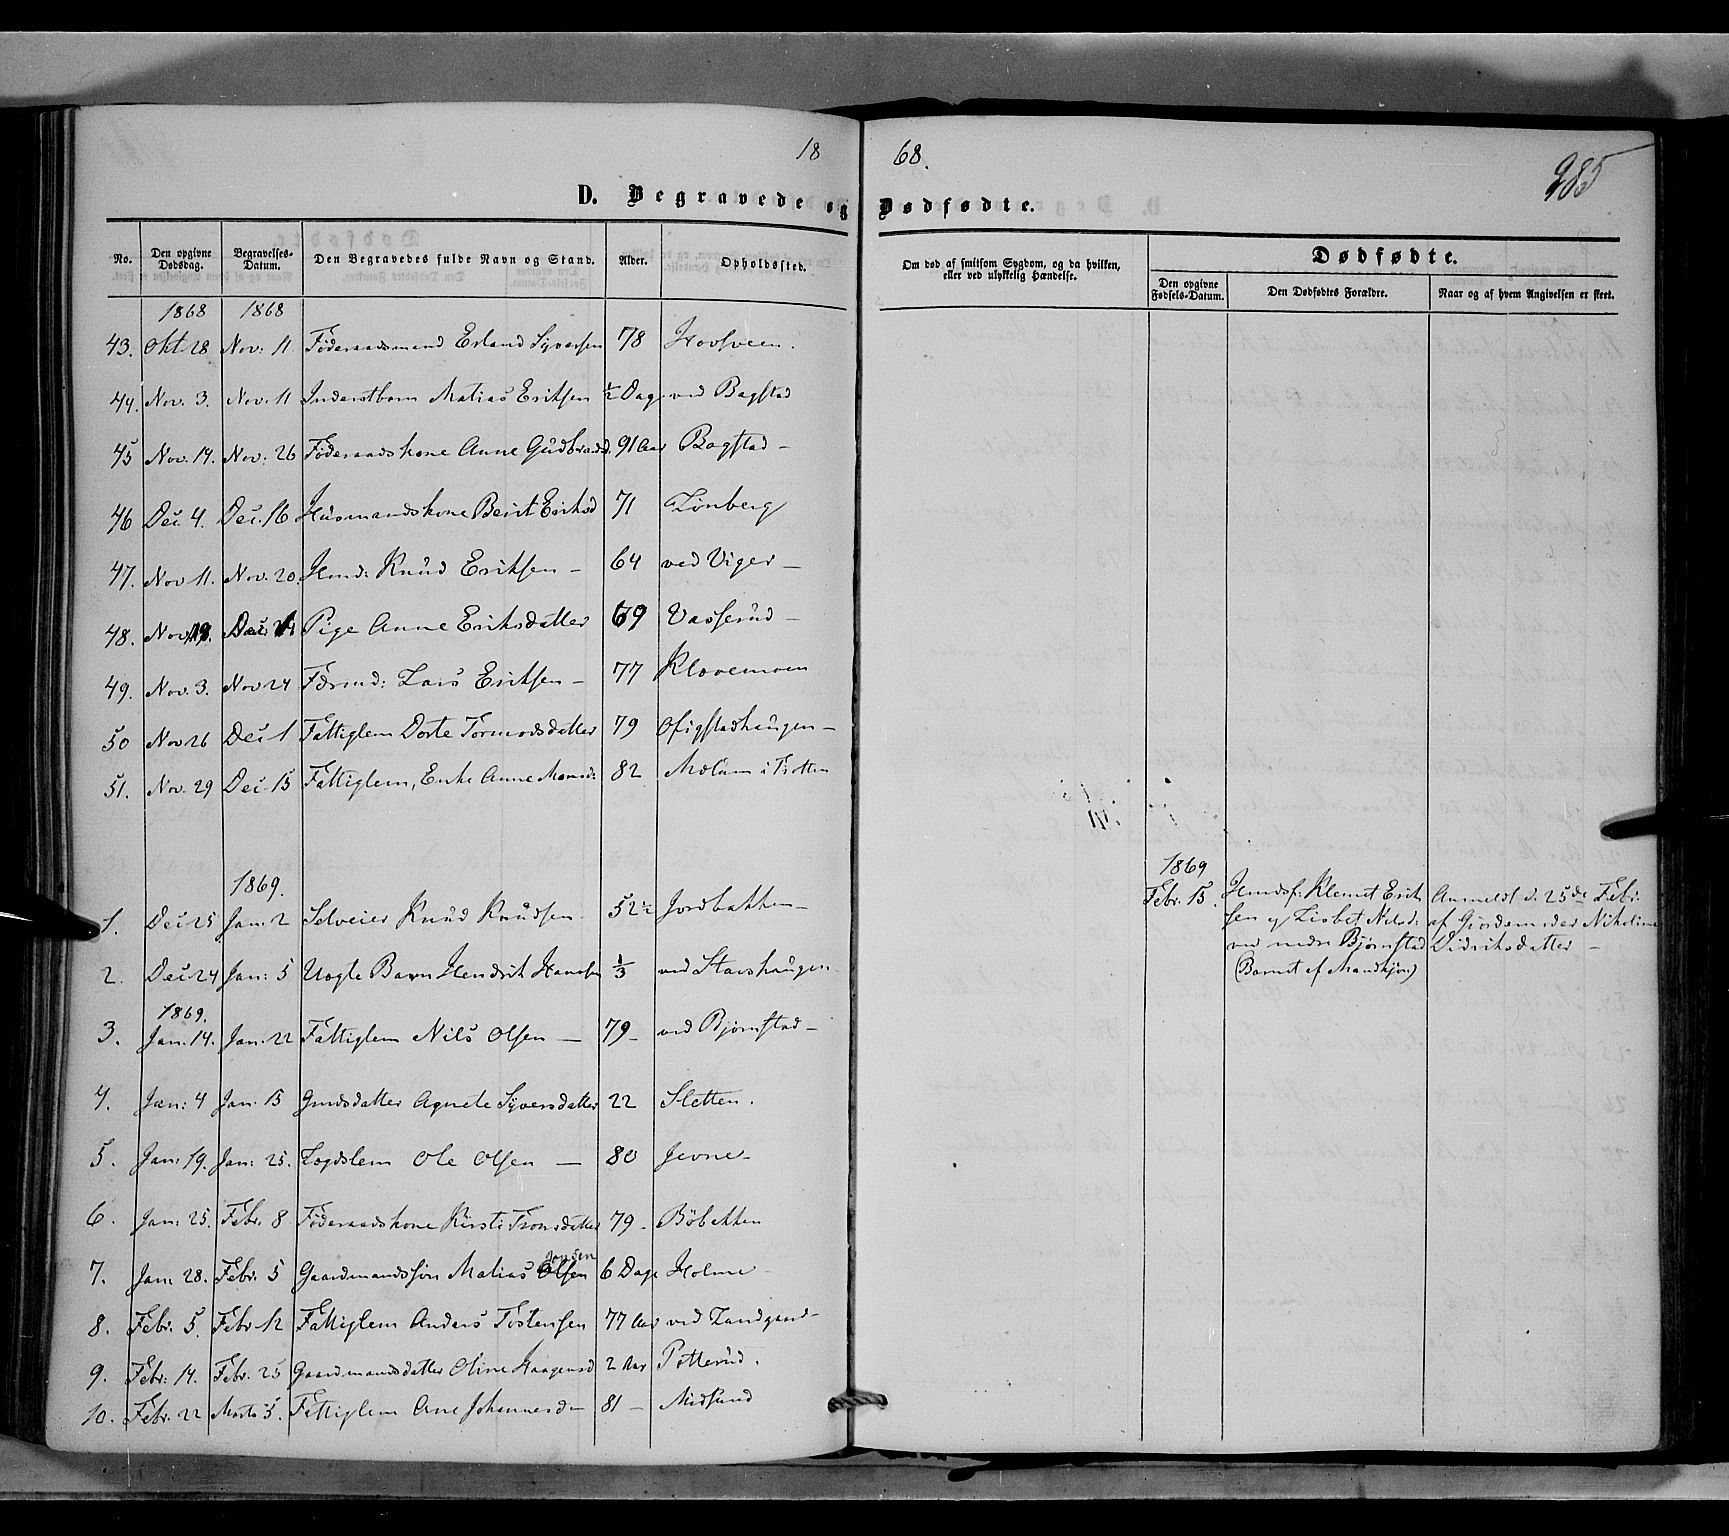 18 68.
285
D. Begravede og Dødfødte.
No. Den opgivne Dødsdag. Begravelses-Datum. Den Begravedes fulde Navn og Stand. Alder. Opholdssted. Om død af smitsom Sygdom, og da hvilken, eller ved ulykkelig Hændelse. Dødfødte.
Den opgivne Fødsels-Datum. Den Dødfødtes Forældre. Naar og af hvem Angivelsen er skeet.
1868 1868
43. Okt. 28 Nov: 11 Föderaadsmand Erland Syversen 78 Hovsveen.
44. Nov. 3. Nov. 11 Inderstbarn Matias Eriksen ½ Dag ved Bagstad
45 Nov. 14. Nov: 26 Föderaadskone Anne Gudbrandsd. 91 Aar Bagstad -
46 Dec. 4. Dec. 16 Husmandskone Berit Eriksd 71 Lönberg
47. Nov 11. Nov. 20. Hmd: Knud Eriksen - 64 ved Viger -
48. Nov. 19. Dec. Pige Anne Eriksdatter 69 Vasserud -
49. Nov. 3. Nov 24 Lars Eriksen - 77 Klovemoen
50 Nov 26 Dec 1 Fattiglem Dorte Tormodsdatter 79 Ofigstadhaugen -
51. Nov. 29 Dec. 15 Fattiglem, Enke Anne Monsd: 82 Mælum i Tretten
1869.
1. Dec 25 Jan: 2 Selveier Knud Knudsen 52½ Jordbakken -
2. Dec 24 Jan: 5 Uægte Barn Hendrik Hansen ⅓ ved Stavshaugen
1869.
3. Jan. 14. Jan. 22 Fattiglem Nils Olsen - 79 - ved Bjørnstad -
4. Jan: 4 Jan: 15 Gmdsdatter Agnete Syversdatter 22 Sletten.
5. Jan: 19. Jan: 25. Lægdslem Ole Olsen - 80 Jevne -
6. Jan: 25. Febr. 8 Föderaadskone Kirsti Tronsdatter 79 - Böbakken
7. Jan. 28. Febr. 5 Gaardmandssön Matias Jansen 6 Dage Holme -
8. Febr. 5. Febr 12 Fattiglem Anders Tostensen 77 Aar ved Landgaard -
9. Febr. 14. Febr. 25 Gaardmandsdatter Oline Haagensd 2 Aar Potterud.
10. Febr. 22 Marts 5. Fattiglem Ane Johannesd - 81 - Midsund
1869
Febr. 15. Hmdsf: Klemet Erik
sen og Lisbet Nilsd:
ved nedre Bjørnstad
(Barnet af Mandkjøn)
Anmeldt d. 25de Febr.
af Gjordemoder Nikoline
Didriksdatter -